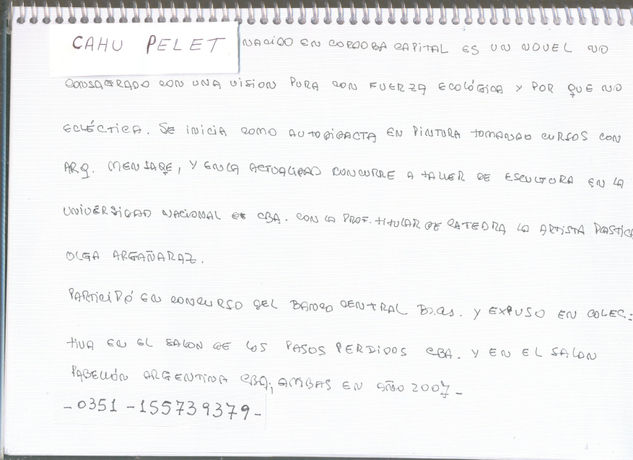 CAHU PELET NACIDO EN CORDOBA CAPITAL ES UN NOVEL NO
CONSAGRADO CON UNA VISION PURA CON FUERZA ECOLÓGICA Y POR QUE NO
ECLÉCTICA. SE INICIA COMO AUTODIDACTA EN PINTURA TOMANDO CURSOS CON
ARQ. Y EN LA ACTUALIDAD CONCURRE A TALLER DE ESCULTURA EN LA
UNIVERSIDAD NACIONAL DE CBA. CON LA PROF. TITULAR DE CATEDRA LA ARTISTA PLASTICA
OLGA ARGAÑARAZ.
PARTICIPÓ EN CONCURSO DEL BANCO CENTRAL Bs.as. Y EXPUSO EN COLEC:
TIVA EN EL SALON DE LOS PASOS PERDIDOS CBA. Y EN EL SALON
PABELLÓN ARGENTINA CBA, AMBAS EN AÑO 2007-
-0351-155739379-